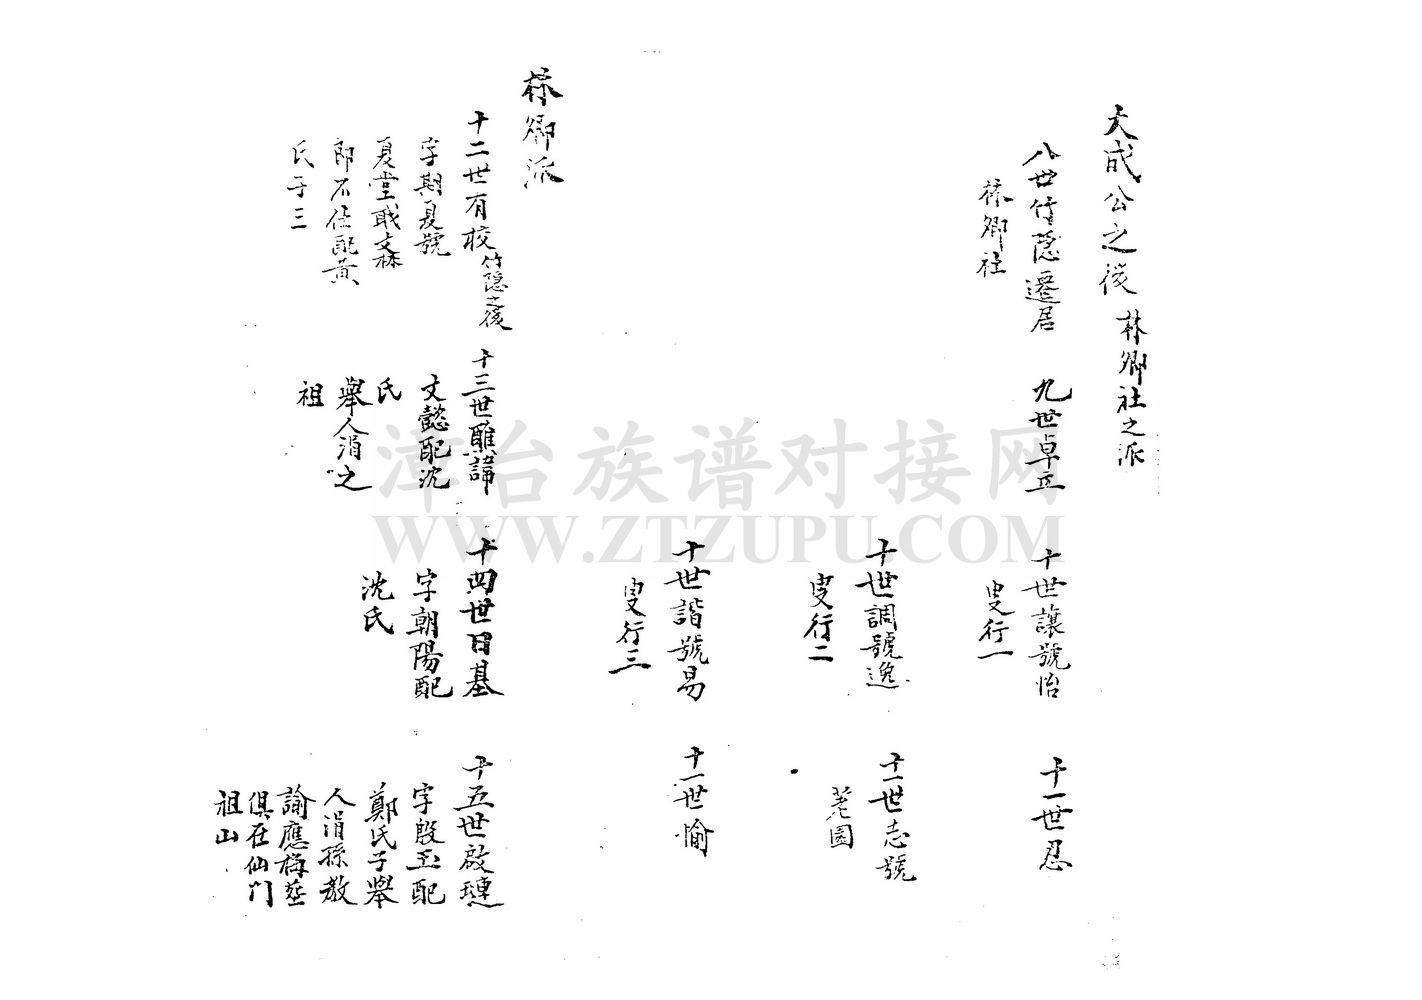 大成公之後
林卿社之派
八世竹隱遷居
林卿社
九世卓立
十世讓號怡
叟行一
十一世忍
十世調號逸
叟行二
十一世志號
菴園
十世諧號易
叟行三
十一世愉
林卿派
十二世有校
竹隱之後
字期夏號
夏堂職文林
郎不仕配黃
氏子三
十三世 諱
文懿配沈
氏
舉人涓之
祖
十四世日基
字朝陽配
沈氏
十五世啟璉
字殷玉配
鄭氏子舉
人涓孫教
諭應梅塟
俱在仙门
祖山
漳台族谱对接网
WWW.ZTZUPU.COM